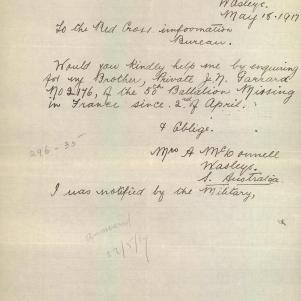 Wasleys.
May 18. 1917
To the Red Cross imfoormation
Bureau.
Would you kindly help me by enquiring
for my Brother, Private J. N. Garrard
No 2176, of the 50th Battalion Missing
in France since. 2nd of April.
& Oblige.
296-35
Mrs A McDonnell
Wasleys.
S. Australia
I was notified by the Military,
answered
22/5/17